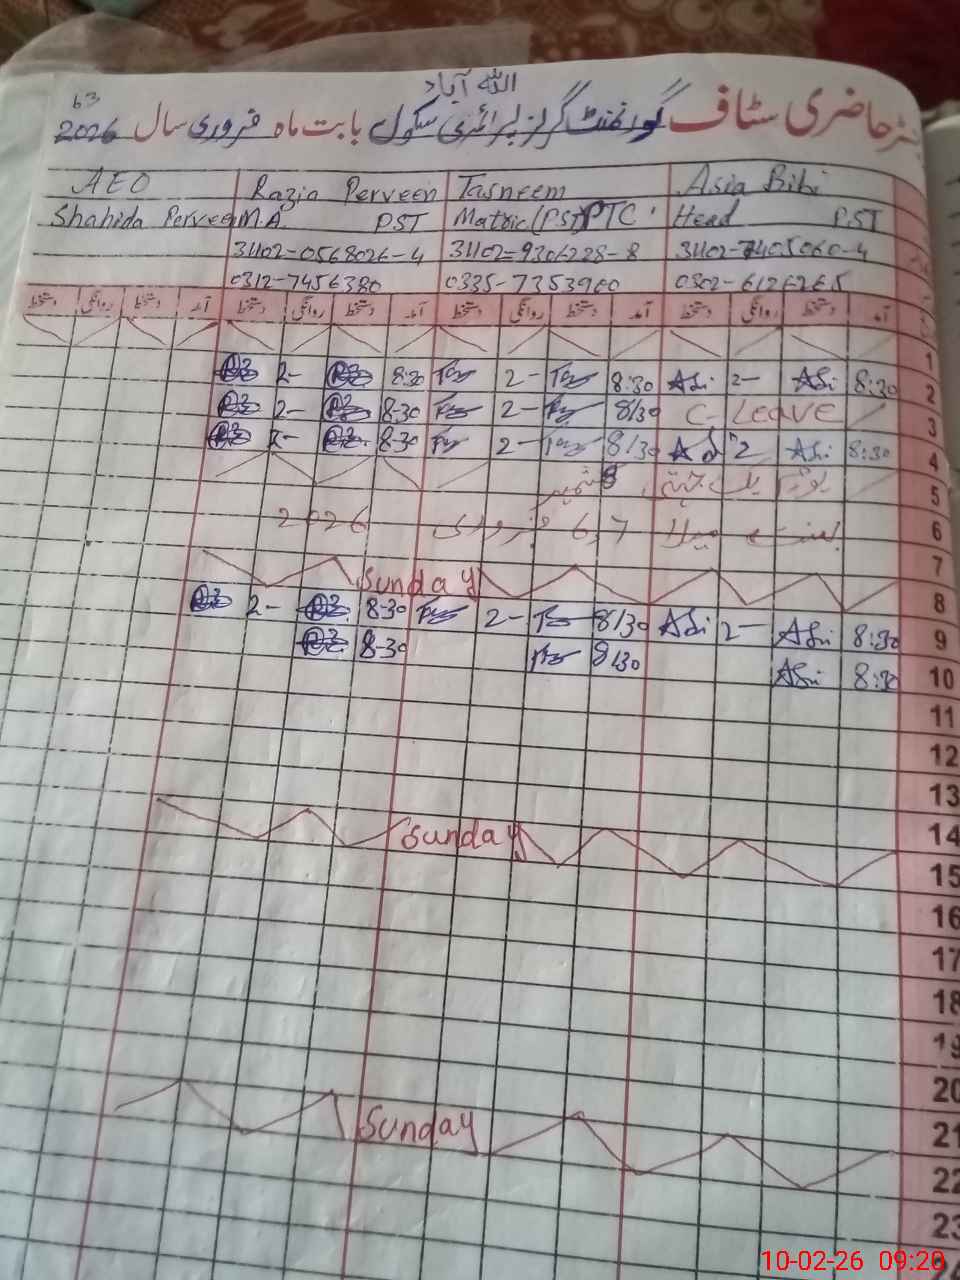 63
اللہ آباد
رجسٹر حاضری سٹاف گورنمنٹ گرلز پرائمری سکول بابت ماہ فروری سال 2026
AEO Razia Perveen Tasneem Asia Bibi
Shahida Perveen M.A. PST Matric (PST) PTC Head PST
31102-0568026-4 31102-9306228-8 31102-7405060-4
0312-7456380 0335-7353960 0302-6126265
آمد دستخط روانگی دستخط آمد دستخط روانگی دستخط آمد دستخط روانگی دستخط آمد دستخط روانگی دستخط
1
2 8:30 ASi 2- ASi 8:30 2- 8:30 2-
3 C. Leave 8/30 2- 8-30 2-
4 8:30 ASi 2 8/30 2- 8-30 2-
5
6 6,7 فروری 2026
7
8 Sunday
9 8:30 ASi 2- ASi 8/30 2- 8-30 2-
10 8:30 ASi 8/30 8-30
11
12
13
14
15 Sunday
16
17
18
19
20
21
22 Sunday
23
10-02-26 09:20